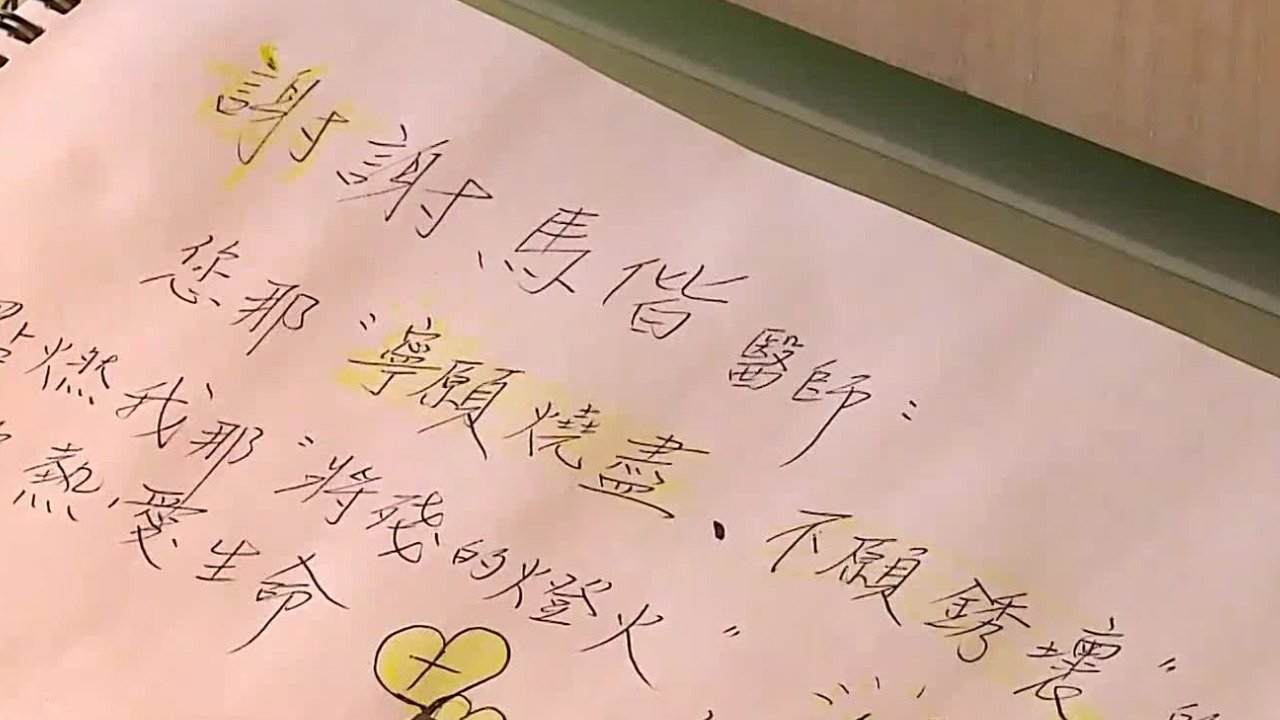 謝謝馬偕醫師：
您那“寧願燒盡、不願銹壞”
點燃我那“將殘的燈火”
熱愛生命